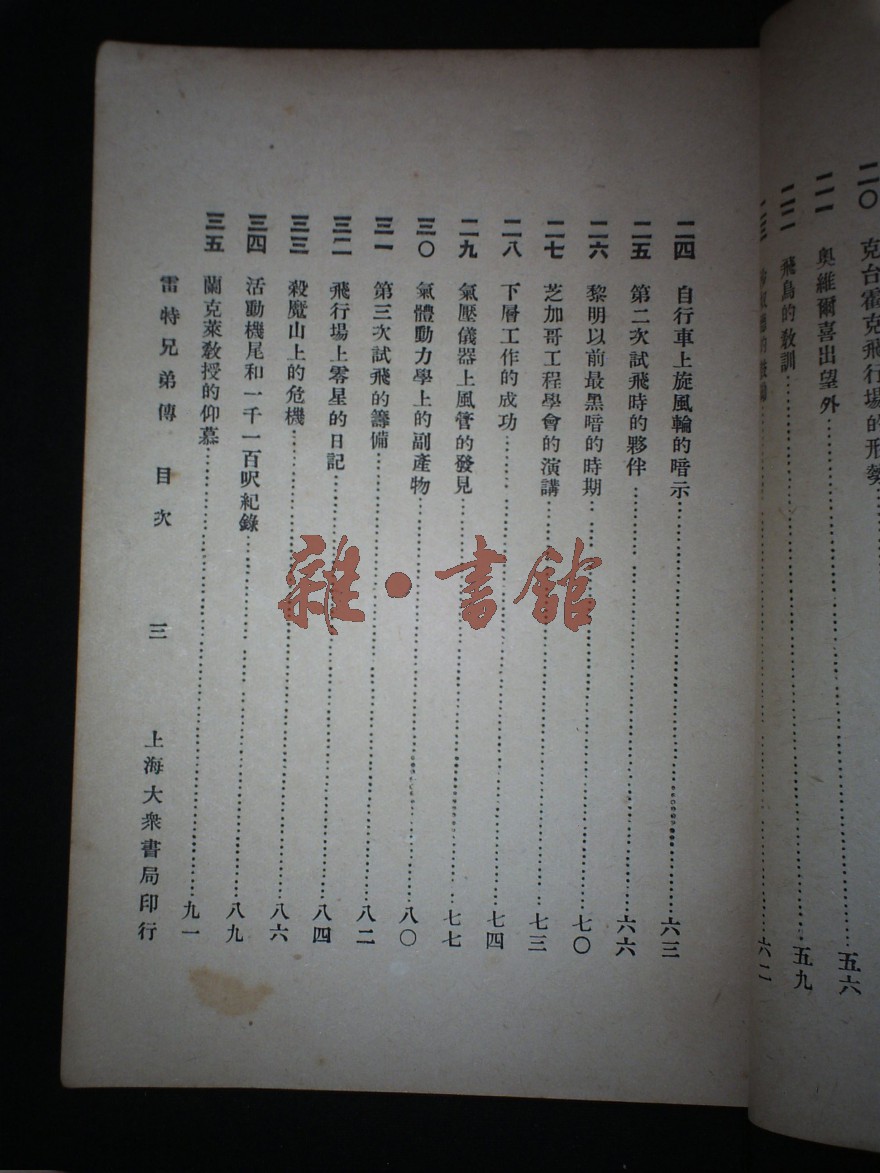 二〇 克台霍克飛行場的形勢
二一 奧維爾喜出望外……五六
二二 飛鳥的教訓……五九
二三……六二
二四 自行車上旋風輪的暗示……六三
二五 第二次試飛時的夥伴……六六
二六 黎明以前最黑暗的時期……七〇
二七 芝加哥工程學會的演講……七三
二八 下層工作的成功……七四
二九 氣壓儀器上風管的發見……七七
三〇 氣體動力學上的副產物……八〇
三一 第三次試飛的籌備……八二
三二 飛行場上零星的日記……八四
三三 殺魔山上的危機……八六
三四 活動機尾和一千一百呎紀錄……八九
三五 蘭克萊教授的仰慕……九一
雷特兄弟傳 目次 三 上海大眾書局印行
雜·書館